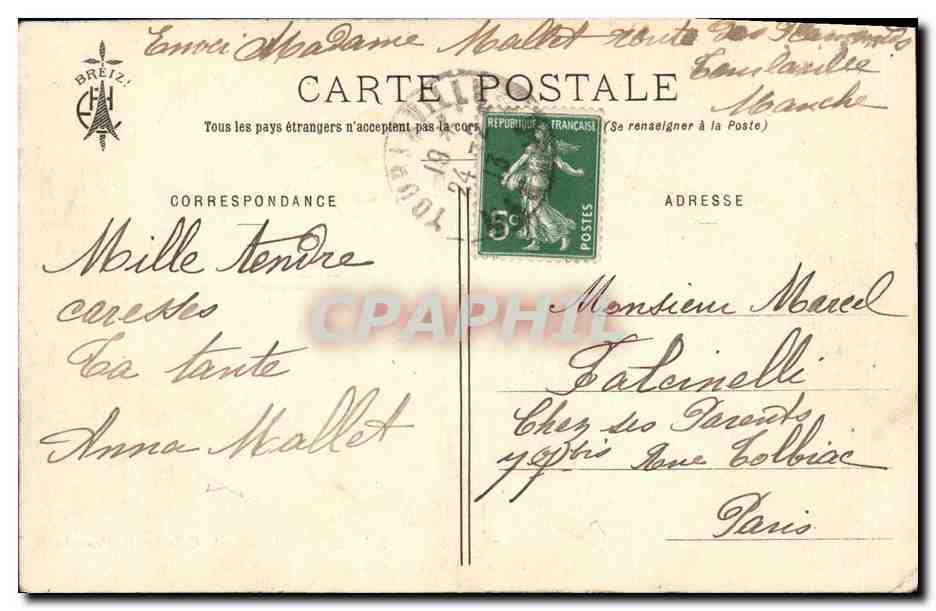 Envoi Madame Mallet route des Flamands
Tourlaville
Manche
BREIZ
CARTE POSTALE
Tous les pays étrangers n'acceptent pas la corr (Se renseigner à la Poste)
TOURLAVILLE
19
24
13
REPUBLIQUE FRANÇAISE
5c
POSTES
CORRESPONDANCE
Mille tendre
caresses
Ta tante
Anna Mallet
ADRESSE
Monsieur Marcel
Falcinelli
Chez ses Parents
bis Rue Tolbiac
Paris
CPAPHIL